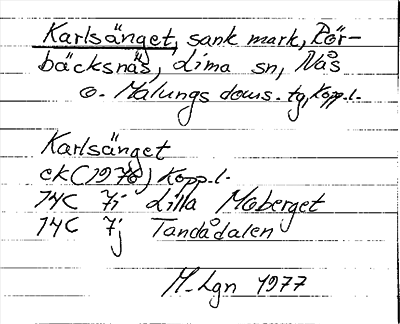 Karlsänget, sank mark, Rör-
bäcksnäs, Lima sn, Nås
o. Malungs doms. tg, Kopp.l.
Karlsänget
ek (1976) Kopp.l.
14C 7i Lilla Moberget
14C 7j Tandådalen
M. Lgn 1977